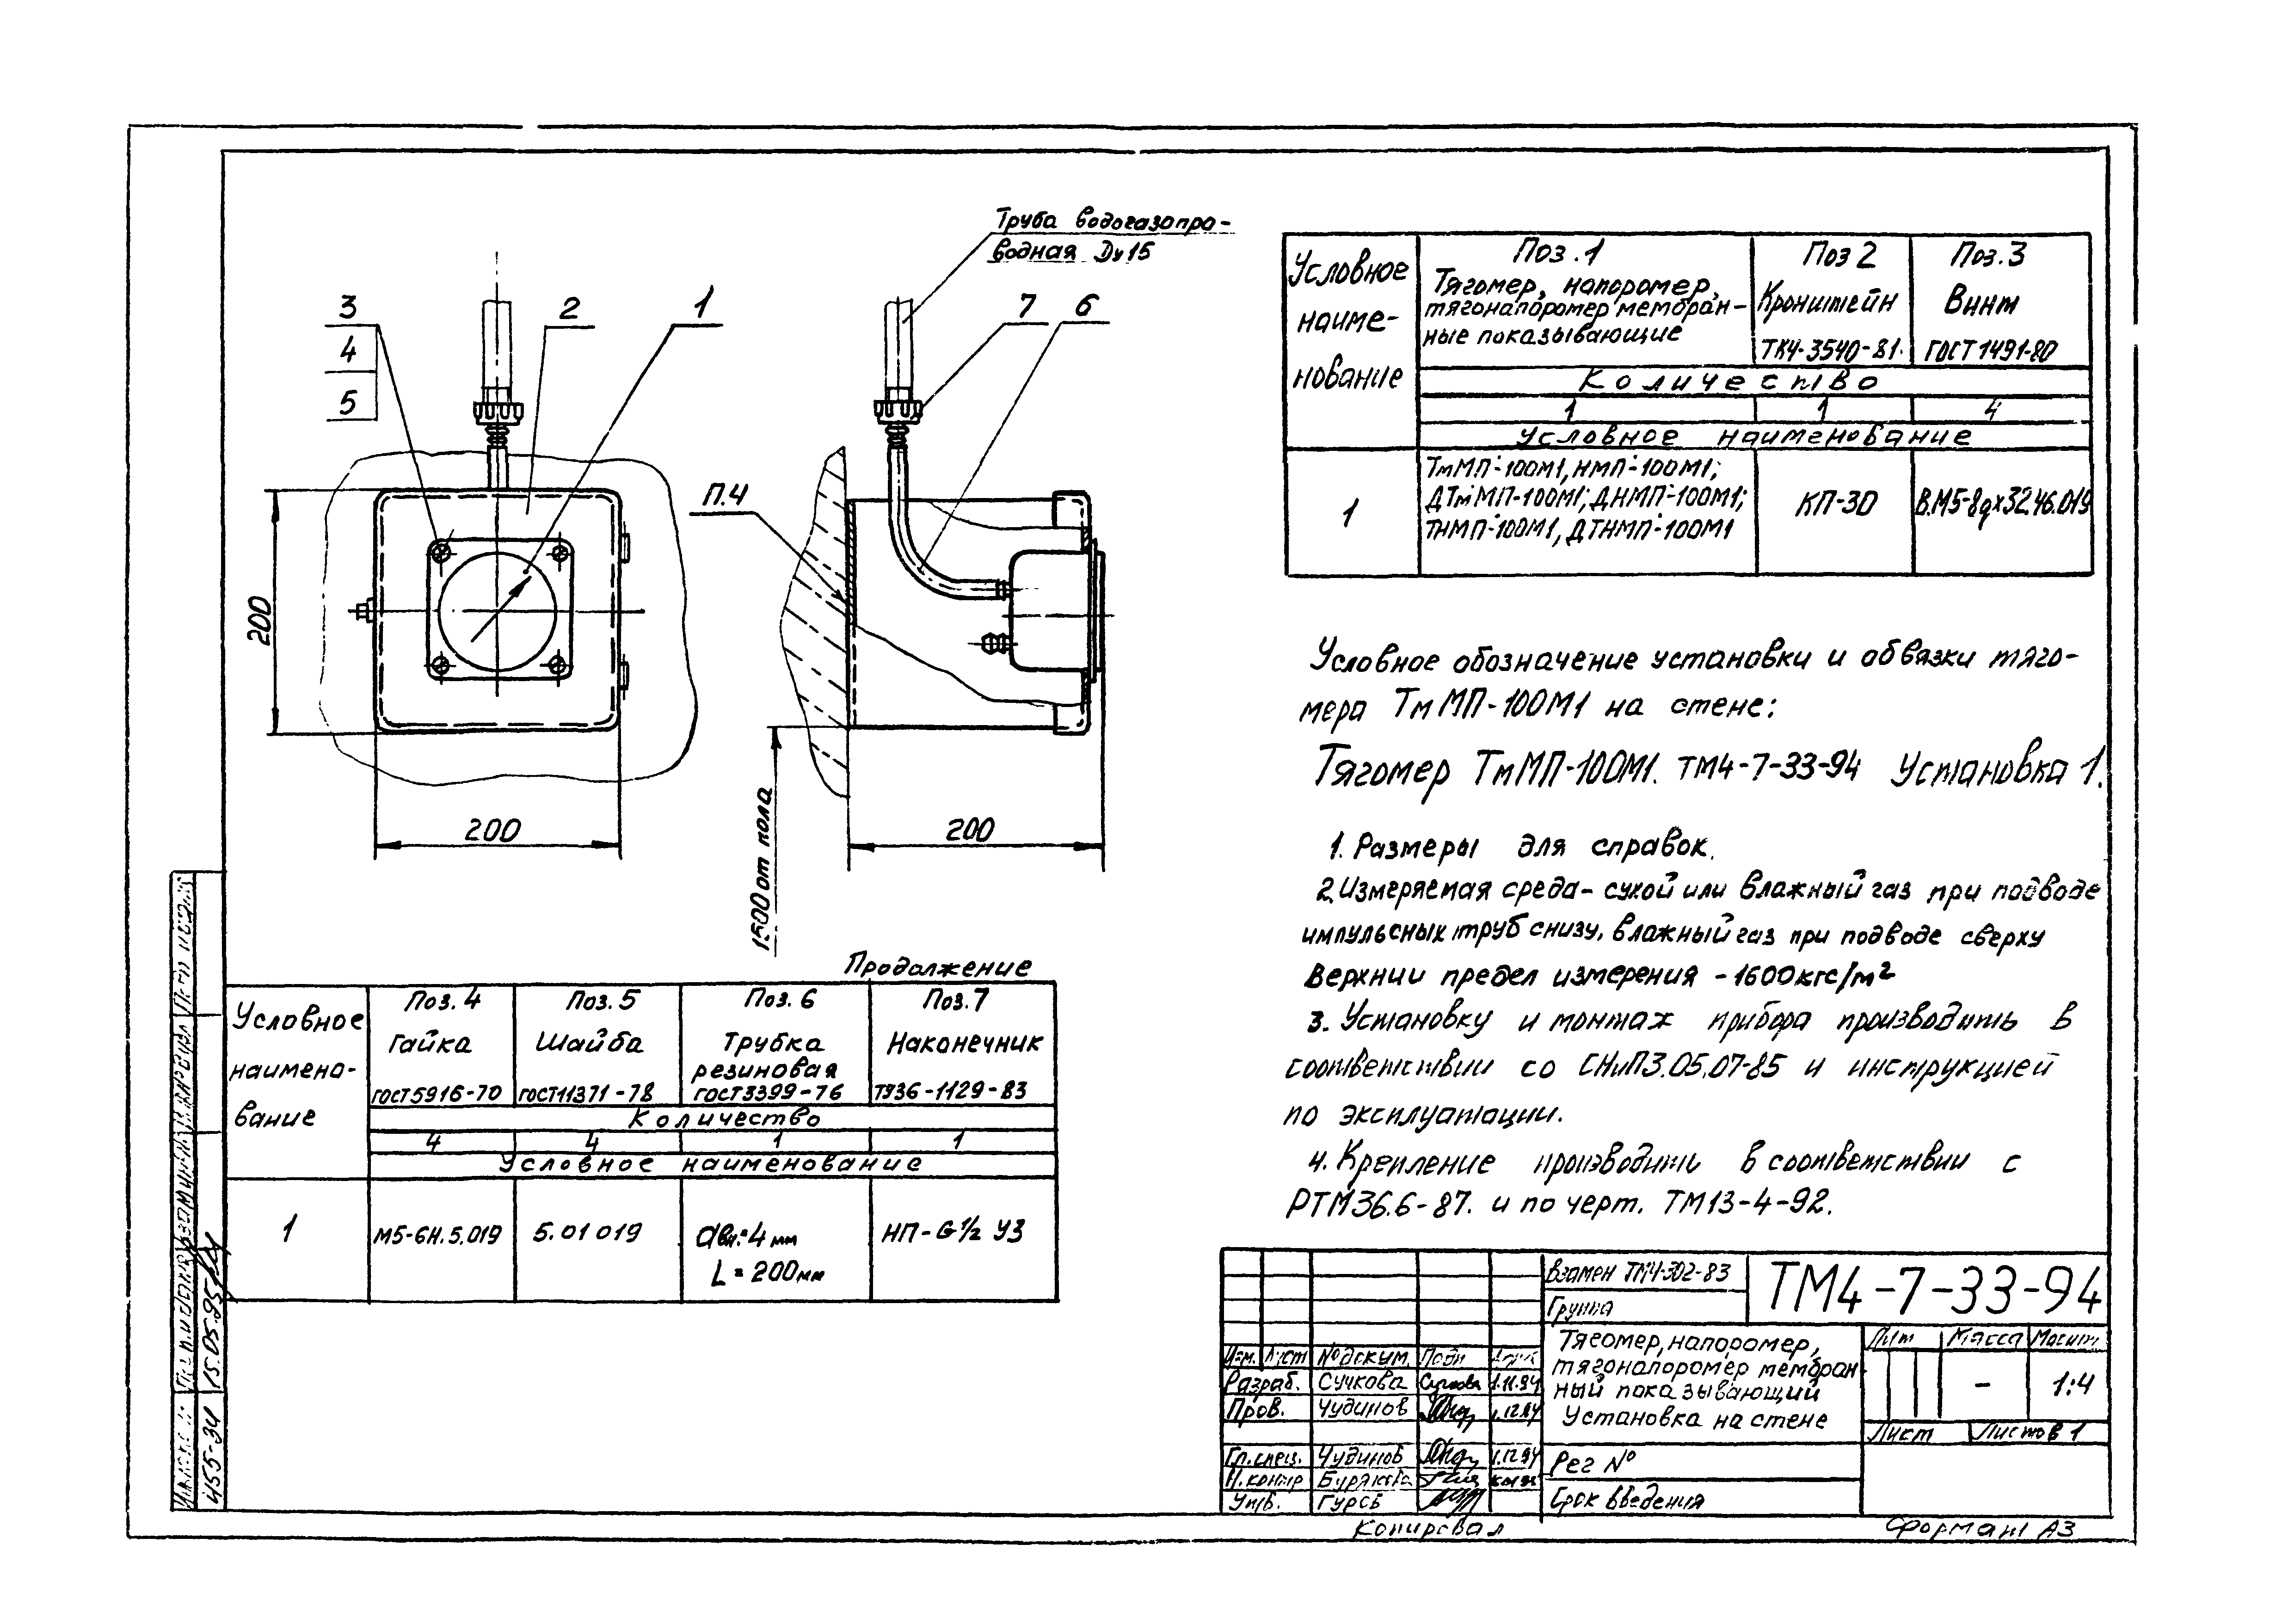 Труба водогазопро-
водная Dу15
3
4
5
2
1
7
6
П.4
200
200
200
1500 от пола
Условное
наиме-
нование
Поз.1
Тягомер, напоромер,
тягонапоромер мембран-
ные показывающие
Поз 2
Кронштейн
ТК4-3540-81.
Поз.3
Винт
ГОСТ 1491-80
Количество
1 1 4
Условное наименование
1
ТмМП-100М1, НМП-100М1;
ДТмМП-100М1; ДНМП-100М1;
ТНМП-100М1, ДТНМП-100М1
КП-30
В.М5-8gх32.46.019
Условное обозначение установки и обвязки тяго-
мера ТмМП-100М1 на стене:
Тягомер ТмМП-100М1. ТМ4-7-33-94 Установка 1.
1. Размеры для справок.
2. Измеряемая среда - сухой или влажный газ при подводе
импульсных труб снизу, влажный газ при подводе сверху
Верхний предел измерения - 1600кгс/м²
3. Установку и монтаж прибора производить в
соответствии со СНиП3.05.07-85 и инструкцией
по эксплуатации.
4. Крепление производить в соответствии с
РТМ36.6-87. и по черт. ТМ13-4-92.
Продолжение
Условное
наимено-
вание
Поз. 4
Гайка
ГОСТ5916-70
Поз. 5
Шайба
ГОСТ11371-78
Поз. 6
Трубка
резиновая
ГОСТ3399-76
Поз.7
Наконечник
ТУ36-1129-83
Количество
4 4 1 1
Условное наименование
1
М5-6Н.5.019
5.01 019
dвн.=4 мм
L = 200мм
НП-G½ У3
Взамен ТМ4-302-83
Группа
ТМ4-7-33-94
Тягомер, напоромер,
тягонапоромер мембран-
ный показывающий
Установка на стене
Лит Масса Масшт
- 1:4
Лист Листов 1
Рег №
Срок введения
Изм. Лист №докум. Подп
Разраб. Сучкова Сучкова 1.11.94
Пров. Чудинов 1.12.94
Гл.спец. Чудинов 1.12.94
Н.контр
Утв. Гуров
Копировал
Формат А3
455-34
15.05.95